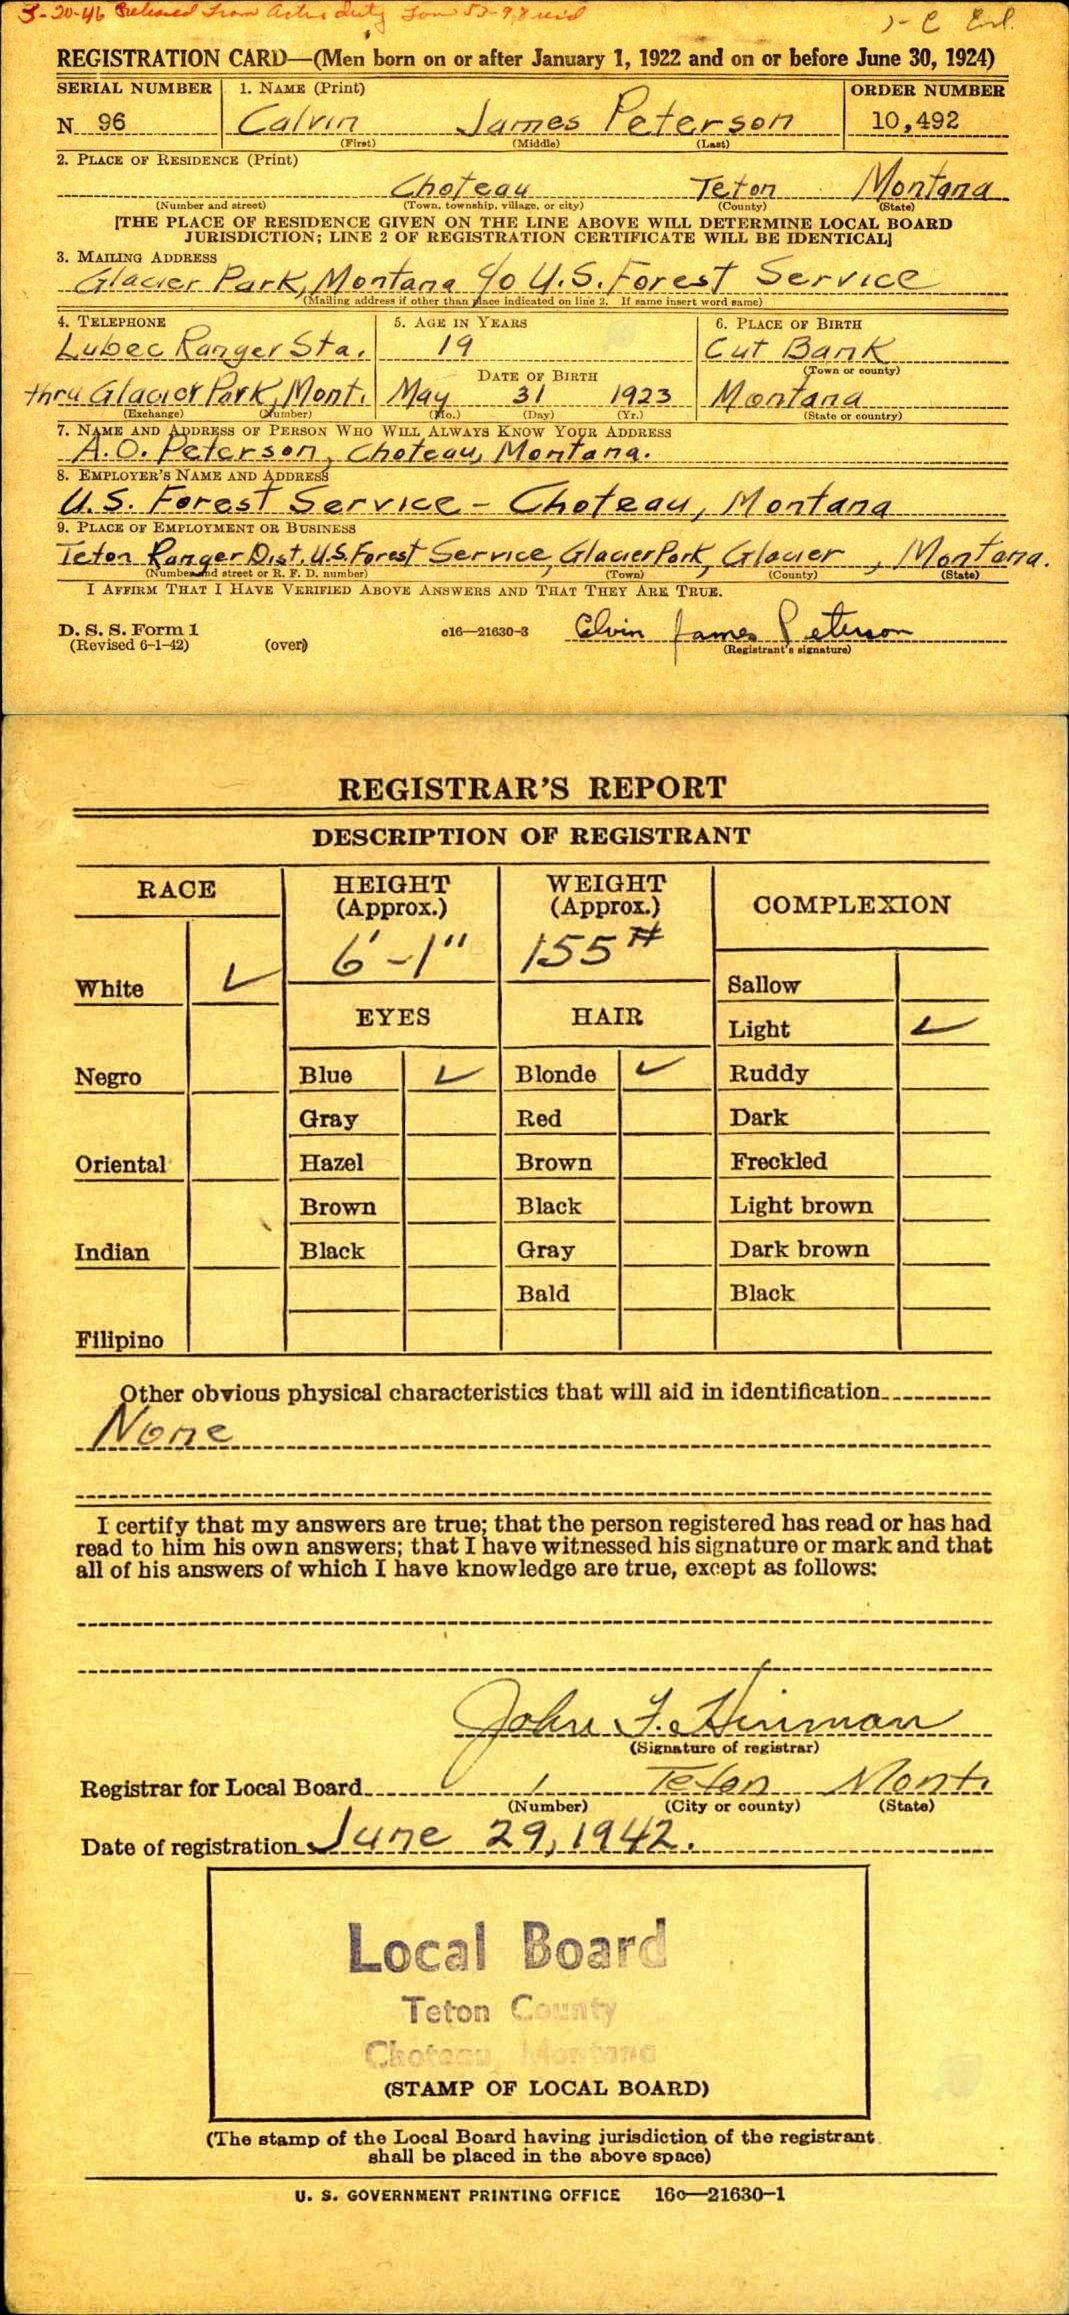 3-20-46 Released from Active duty Form 53-98 rec'd
1-C Enl.
REGISTRATION CARD—(Men born on or after January 1, 1922 and on or before June 30, 1924)
SERIAL NUMBER 1. NAME (Print) ORDER NUMBER
N 96 Calvin James Peterson 10,492
(First) (Middle) (Last)
2. PLACE OF RESIDENCE (Print)
Choteau Teton Montana
(Number and street) (Town, township, village, or city) (County) (State)
[THE PLACE OF RESIDENCE GIVEN ON THE LINE ABOVE WILL DETERMINE LOCAL BOARD
JURISDICTION; LINE 2 OF REGISTRATION CERTIFICATE WILL BE IDENTICAL]
3. MAILING ADDRESS
Glacier Park, Montana c/o U.S. Forest Service
(Mailing address if other than place indicated on line 2. If same insert word same)
4. TELEPHONE 5. AGE IN YEARS 6. PLACE OF BIRTH
Lubec Ranger Sta. 19 Cut Bank
DATE OF BIRTH (Town or county)
thru Glacier Park, Mont. May 31 1923 Montana
(Exchange) (Number) (Mo.) (Day) (Yr.) (State or country)
7. NAME AND ADDRESS OF PERSON WHO WILL ALWAYS KNOW YOUR ADDRESS
A.O. Peterson, Choteau, Montana.
8. EMPLOYER'S NAME AND ADDRESS
U.S. Forest Service - Choteau, Montana
9. PLACE OF EMPLOYMENT OR BUSINESS
Teton Ranger Dist. U.S. Forest Service, Glacier Park, Glacier, Montana.
(Number and street or R. F. D. number) (Town) (County) (State)
I AFFIRM THAT I HAVE VERIFIED ABOVE ANSWERS AND THAT THEY ARE TRUE.
D. S. S. Form 1 c16—21630-3 Calvin James Peterson
(Revised 6-1-42) (over) (Registrant's signature)
REGISTRAR'S REPORT
DESCRIPTION OF REGISTRANT
RACE HEIGHT WEIGHT COMPLEXION
(Approx.) (Approx.)
6'-1" 155#
White ✓ Sallow
EYES HAIR Light ✓
Negro Blue ✓ Blonde ✓ Ruddy
Gray Red Dark
Oriental Hazel Brown Freckled
Brown Black Light brown
Indian Black Gray Dark brown
Bald Black
Filipino
Other obvious physical characteristics that will aid in identification
None
I certify that my answers are true; that the person registered has read or has had
read to him his own answers; that I have witnessed his signature or mark and that
all of his answers of which I have knowledge are true, except as follows:
John F. Hinman
(Signature of registrar)
Registrar for Local Board 1 Teton Mont.
(Number) (City or county) (State)
Date of registration June 29, 1942.
Local Board
Teton County
Choteau, Montana
(STAMP OF LOCAL BOARD)
(The stamp of the Local Board having jurisdiction of the registrant
shall be placed in the above space)
U. S. GOVERNMENT PRINTING OFFICE 16c—21630-1